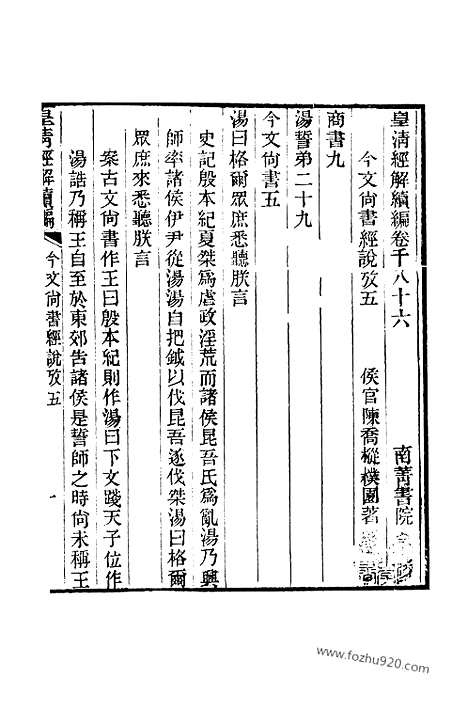 皇清經解續編卷千八十六
南菁書院
今文尚書經說攷五
侯官陳喬樅樸園著
商書九
湯誓弟二十九
今文尚書五
湯曰格爾眾庶悉聽朕言
史記殷本紀夏桀為虐政淫荒而諸侯昆吾氏為亂湯乃興
師率諸侯伊尹從湯湯自把鉞以伐昆吾遂伐桀湯曰格爾
眾庶來悉聽朕言
案古文尚書作王曰殷本紀則作湯曰下文踐天子位作
湯誥乃稱王自至於東郊告諸侯是誓師之時尚未稱王
皇清經解續編
今文尚書經說攷五
一
www.fozhu920.com